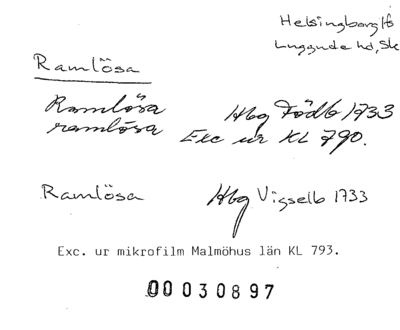 Helsingborg lf
Luggude hd, Sk
Ramlösa
Ramlösa Hbg Födb 1733
ramlösa Exc ur KL 790.
Ramlösa Hbg Vigselb 1733
Exc. ur mikrofilm Malmöhus län KL 793.
00030897